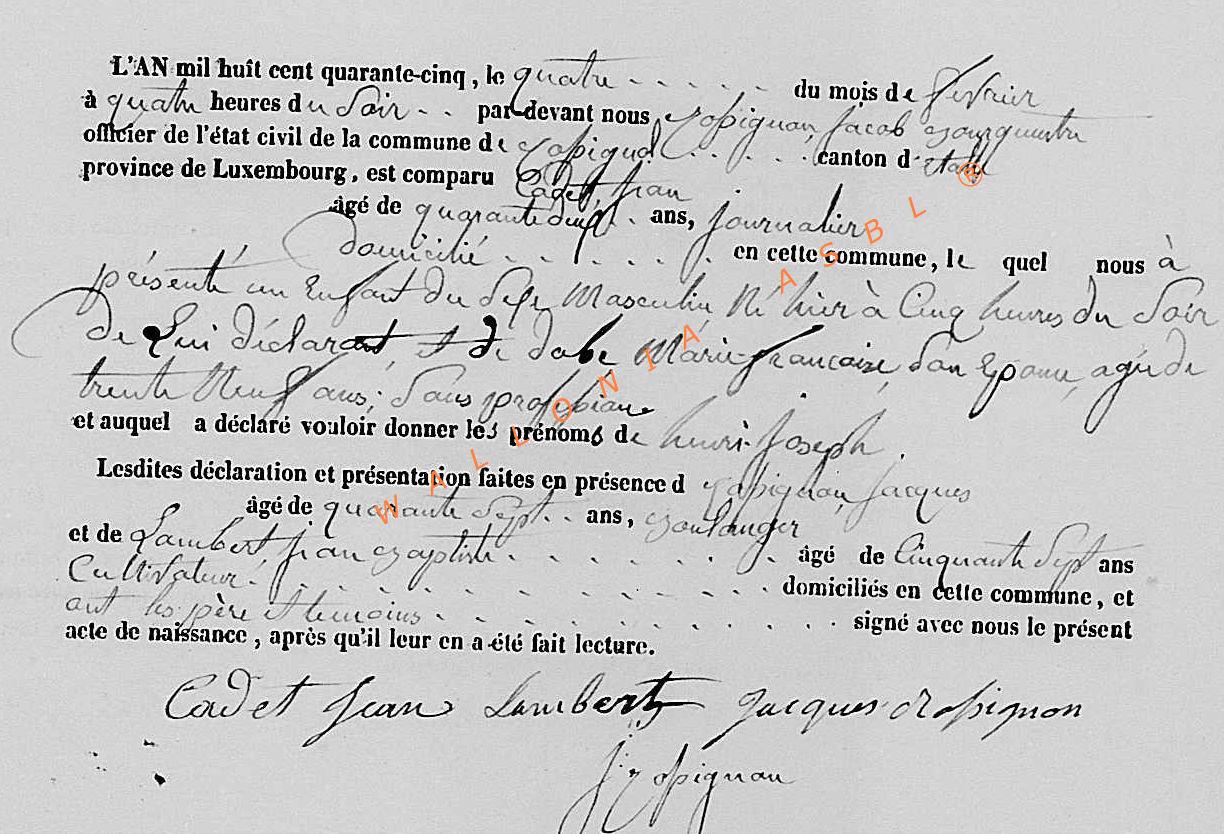 L'AN mil huit cent quarante-cinq, le quatre . . . . . du mois de février
à quatre heures du Soir . . par-devant nous Rossignon, Jacob Bourguemtre
officier de l'état civil de la commune de . . . . . canton d'étalle
province de Luxembourg, est comparu Cadet, Jean
âgé de quarante deux . . ans, journalier
domicilié . . . . . . . en cette commune, le quel nous à
présenté un Enfant du Sexe Masculin, Né hier à Cinq heures du Soir
de Lui déclarant, et de Marie françoise, Son Epouse, agée de
trente Neuf ans, Sans profession
et auquel a déclaré vouloir donner les prénoms de henri-Joseph.
Lesdites déclaration et présentation faites en présence d Rossignon, Jacques
âgé de quarante Sept . . ans, Boulanger
et de Lambert jean Baptiste . . . . . . . âgé de Cinquante Sept ans
Cultivateur . . . . . . . . . . domiciliés en cette commune, et
ont les père et témoins . . . . . . . . . . signé avec nous le présent
acte de naissance, après qu'il leur en a été fait lecture.
Cadet Jean Lambert Jacques Rossignon
J. Rossignon
WALLONIA ASBL ®